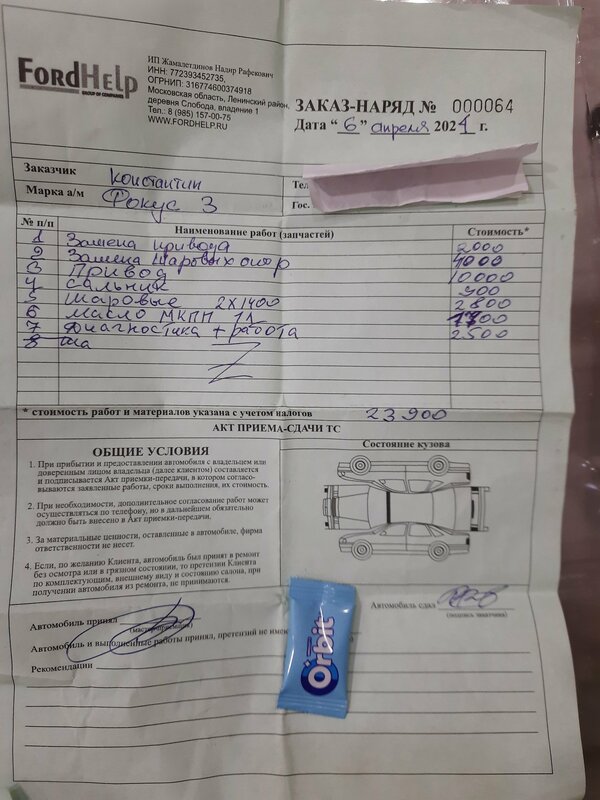 FORDHELP
GROUP OF COMPANIES
ИП Жамалетдинов Надир Рафекович
ИНН: 772393452735,
ОГРНИП: 316774600374918
Московская область, Ленинский район,
деревня Слобода, владение 1
Тел.: 8 (985) 157-00-75
WWW.FORDHELP.RU
ЗАКАЗ-НАРЯД № 000064
Дата "6" апреля 2021 г.
Заказчик Константин
Тел
Марка а/м Фокус 3
Гос.
№ п/п Наименование работ (запчастей) Стоимость*
1 Замена привода 2000
2 Замена шаровых опор 4000
3 Привод 10000
4 Сальник 900
5 Шаровые 2х1400 2800
6 Масло МКПП 1700
7 Диагностика + работа 2500
8
* стоимость работ и материалов указана с учетом налогов 23900
АКТ ПРИЕМА-СДАЧИ ТС
ОБЩИЕ УСЛОВИЯ
1. При прибытии и предоставлении автомобиля с владельцем или
доверенным лицом владельца (далее клиентом) составляется
и подписывается Акт приемки-передачи, в котором согласо-
вываются заявленные работы, сроки выполнения, их стоимость.
2. При необходимости, дополнительное согласование работ может
осуществляться по телефону, но в дальнейшем обязательно
должно быть внесено в Акт приемки-передачи.
3. За материальные ценности, оставленные в автомобиле, фирма
ответственности не несет.
4. Если, по желанию Клиента, автомобиль был принят в ремонт
без осмотра или в грязном состоянии, то претензии Клиента
по комплектующим, внешнему виду и состоянию салона, при
получении автомобиля из ремонта, не принимаются.
Состояние кузова
Автомобиль принял
(мастер-приемщик)
Автомобиль сдал
(подпись заказчика)
Автомобиль и выполненные работы принял, претензий не име
Рекомендации
Orbit